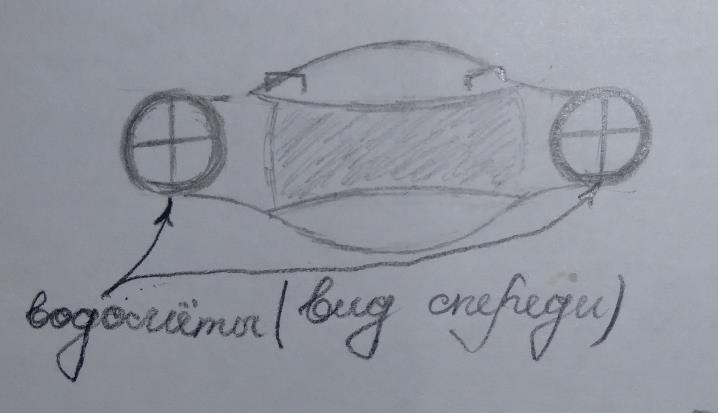 водомёты (вид спереди)